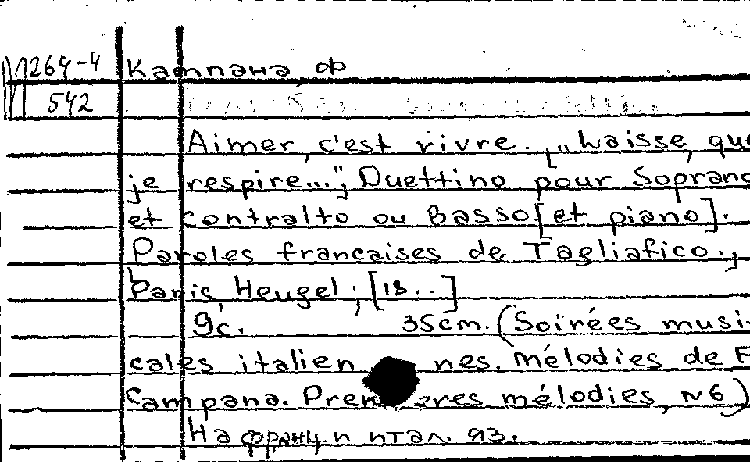 1264-4 Кампана, Ф
542
Aimer, c'est vivre. ["Laisse, que
je respire..."], Duettino pour Soprano
et contralto ou Basso [et piano].
Paroles francaises de Tagliafico.,
Paris, Heugel, [18..]
9c. 35cm. (Soirées musi-
cales italiennes. mélodies de F
Campana. Premières mélodies, №6)
На франц и итал. яз.